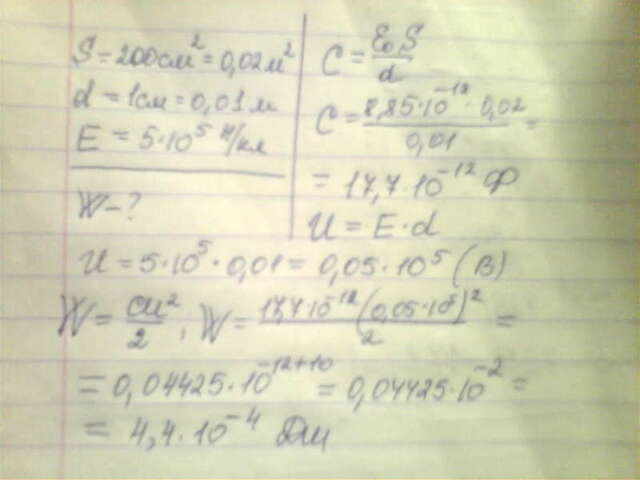 S = 200см² = 0,02м²
d = 1см = 0,01м
E = 5·10⁵ Н/кл
W - ?
C = ε₀S/d
C = 8,85·10⁻¹²·0,02/0,01 =
= 17,7·10⁻¹² Ф
U = E·d
U = 5·10⁵·0,01 = 0,05·10⁵ (В)
W = CU²/2, W = 17,7·10⁻¹²(0,05·10⁵)²/2 =
= 0,04425·10⁻¹²⁺¹⁰ = 0,04425·10⁻² =
= 4,4·10⁻⁴ Дж